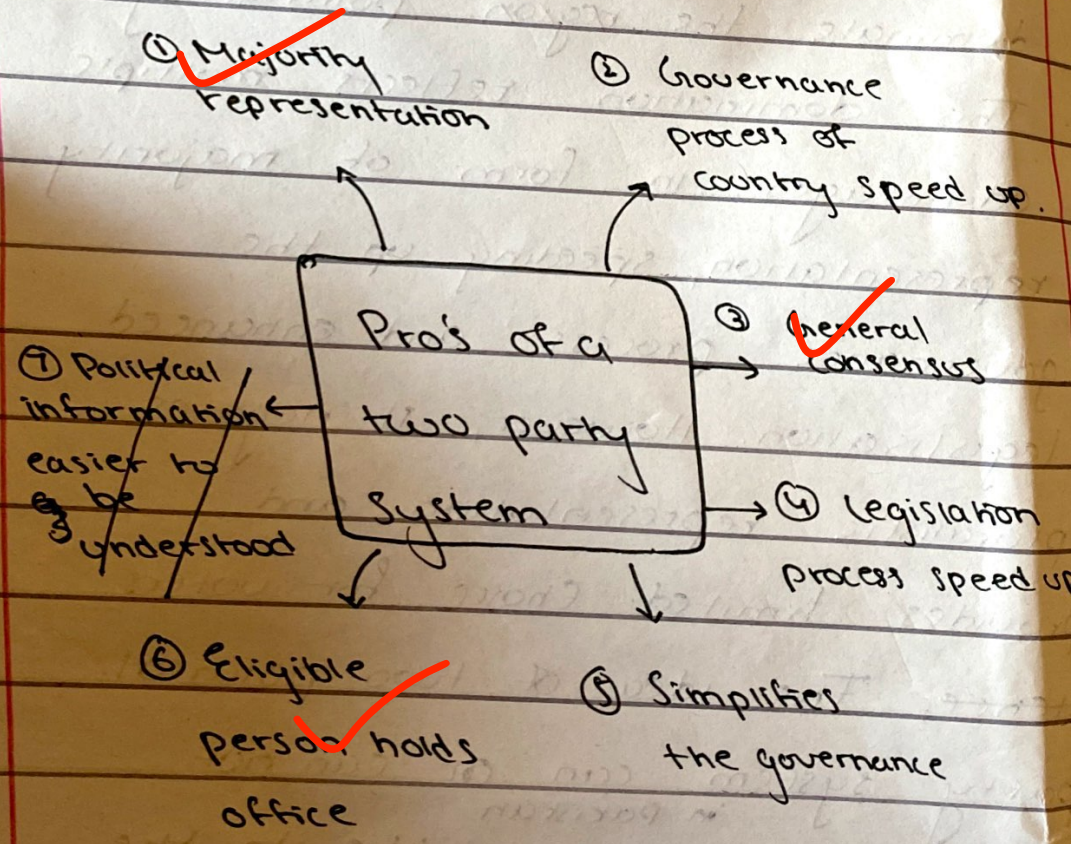 ① Majority
representation
② Governance
process of
country speed up.
Pro's of a
two party
system
③ General
consensus
④ Legislation
process speed up
⑤ Simplifies
the governance
⑥ Eligible
person holds
office
⑦ Political
information
easier to
be
understood